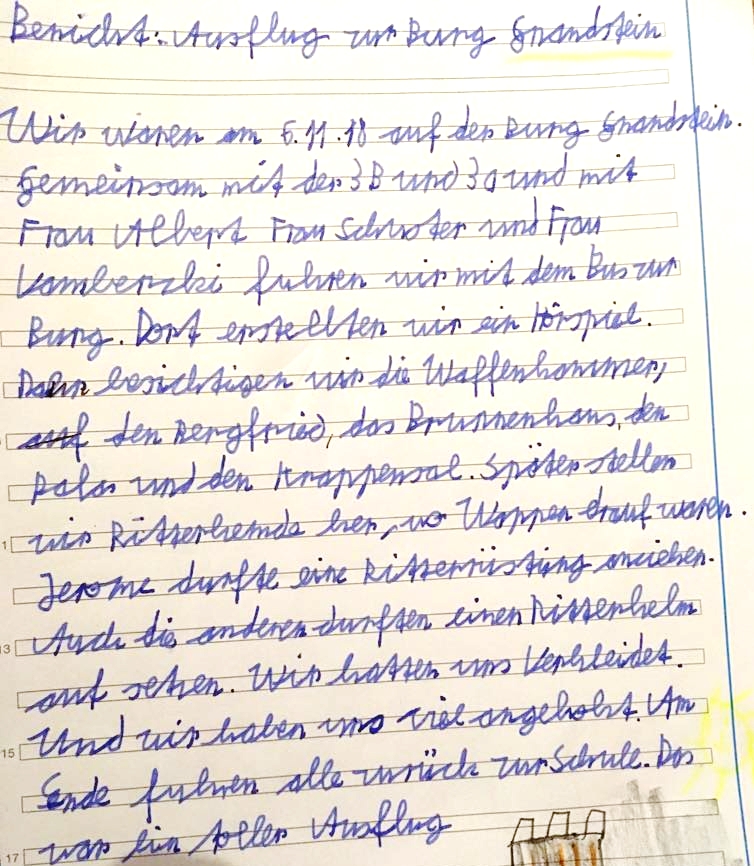 Bericht: Ausflug zur Burg Grandstein
Wir waren am 6.11.18 auf der Burg Grandstein.
Gemeinsam mit der 3B und 3a und mit
Frau Albert Frau Schuster und Frau
fuhren wir mit dem Bus zur
Burg. Dort erstellten wir ein Hörspiel.
Dann besichtigen wir die Waffenkammer,
den Bergfried, das Brunnenhaus, den
Palas und den Knappensal. Später stellen
wir Ritterhemde her, wo Wappen drauf waren.
Jerome durfte eine Ritterrüstung anziehen.
Auch die anderen durften einen Rittenhelm
auf setzen. Wir hatten uns Verkleidet.
Und wir haben uns viel angehört. Am
Ende fuhren alle zurück zur Schule. Das
war ein toller Ausflug
1
13
15
17